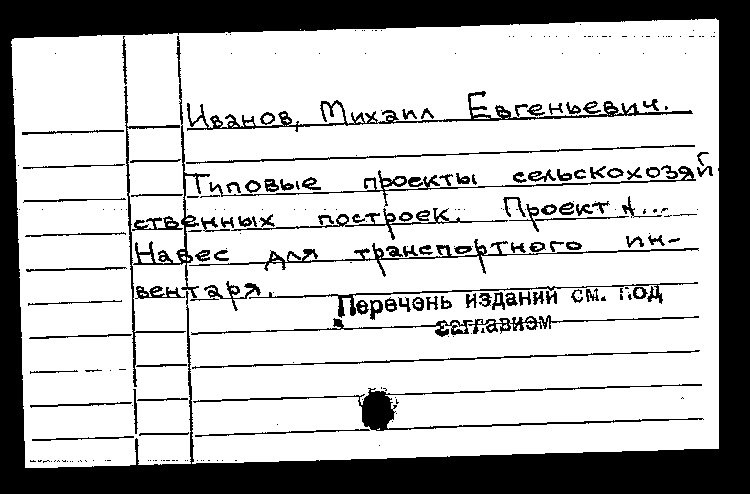 Иванов, Михаил Евгеньевич.
Типовые проекты сельскохозяй
ственных построек. Проект
Навес для транспортного ин-
вентаря.
Перечень изданий см. под
заглавием